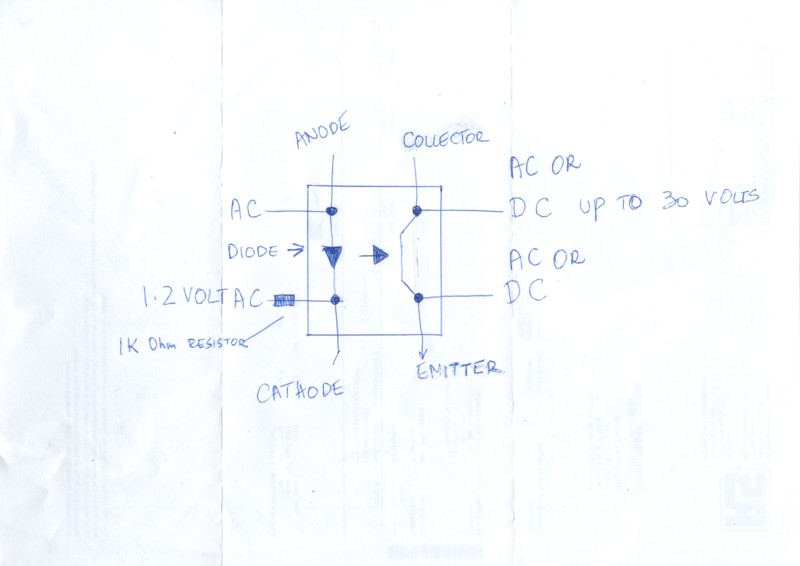 ANODE
COLLECTOR
AC OR
AC
DC UP TO 30 VOLTS
DIODE
AC OR
1.2 VOLT AC
DC
1K Ohm RESISTOR
EMITTER
CATHODE